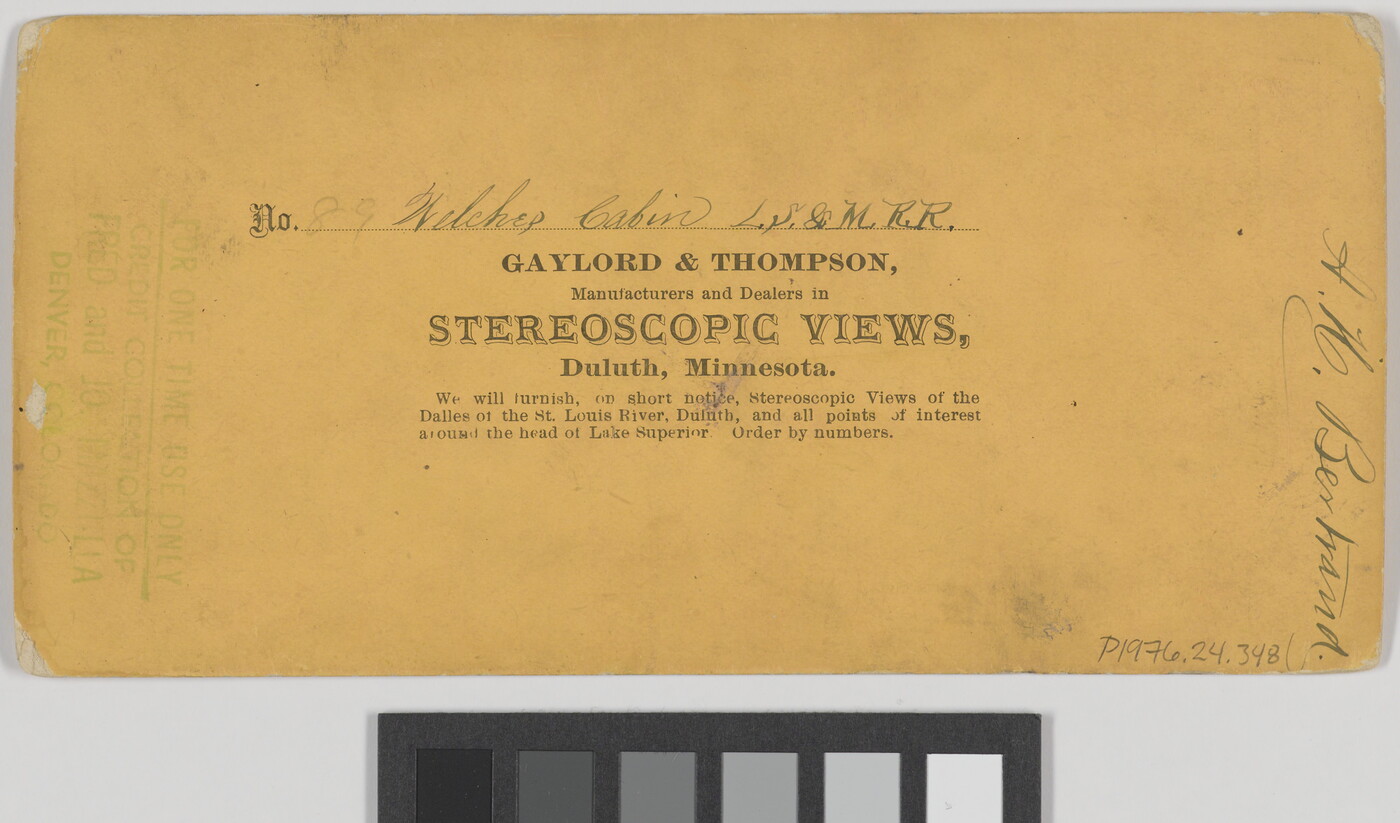 No. 89 Welches Cabin L.S.& M.R.R.
GAYLORD & THOMPSON,
Manufacturers and Dealers in
STEREOSCOPIC VIEWS,
Duluth, Minnesota.
We will furnish, on short notice, Stereoscopic Views of the
Dalles of the St. Louis River, Duluth, and all points of interest
around the head of Lake Superior. Order by numbers.
A. K. Bertrand.
P1976.24.348
FOR ONE TIME USE ONLY
CREDIT COLLECTION OF
FRED and JO
DENVER, COLORADO